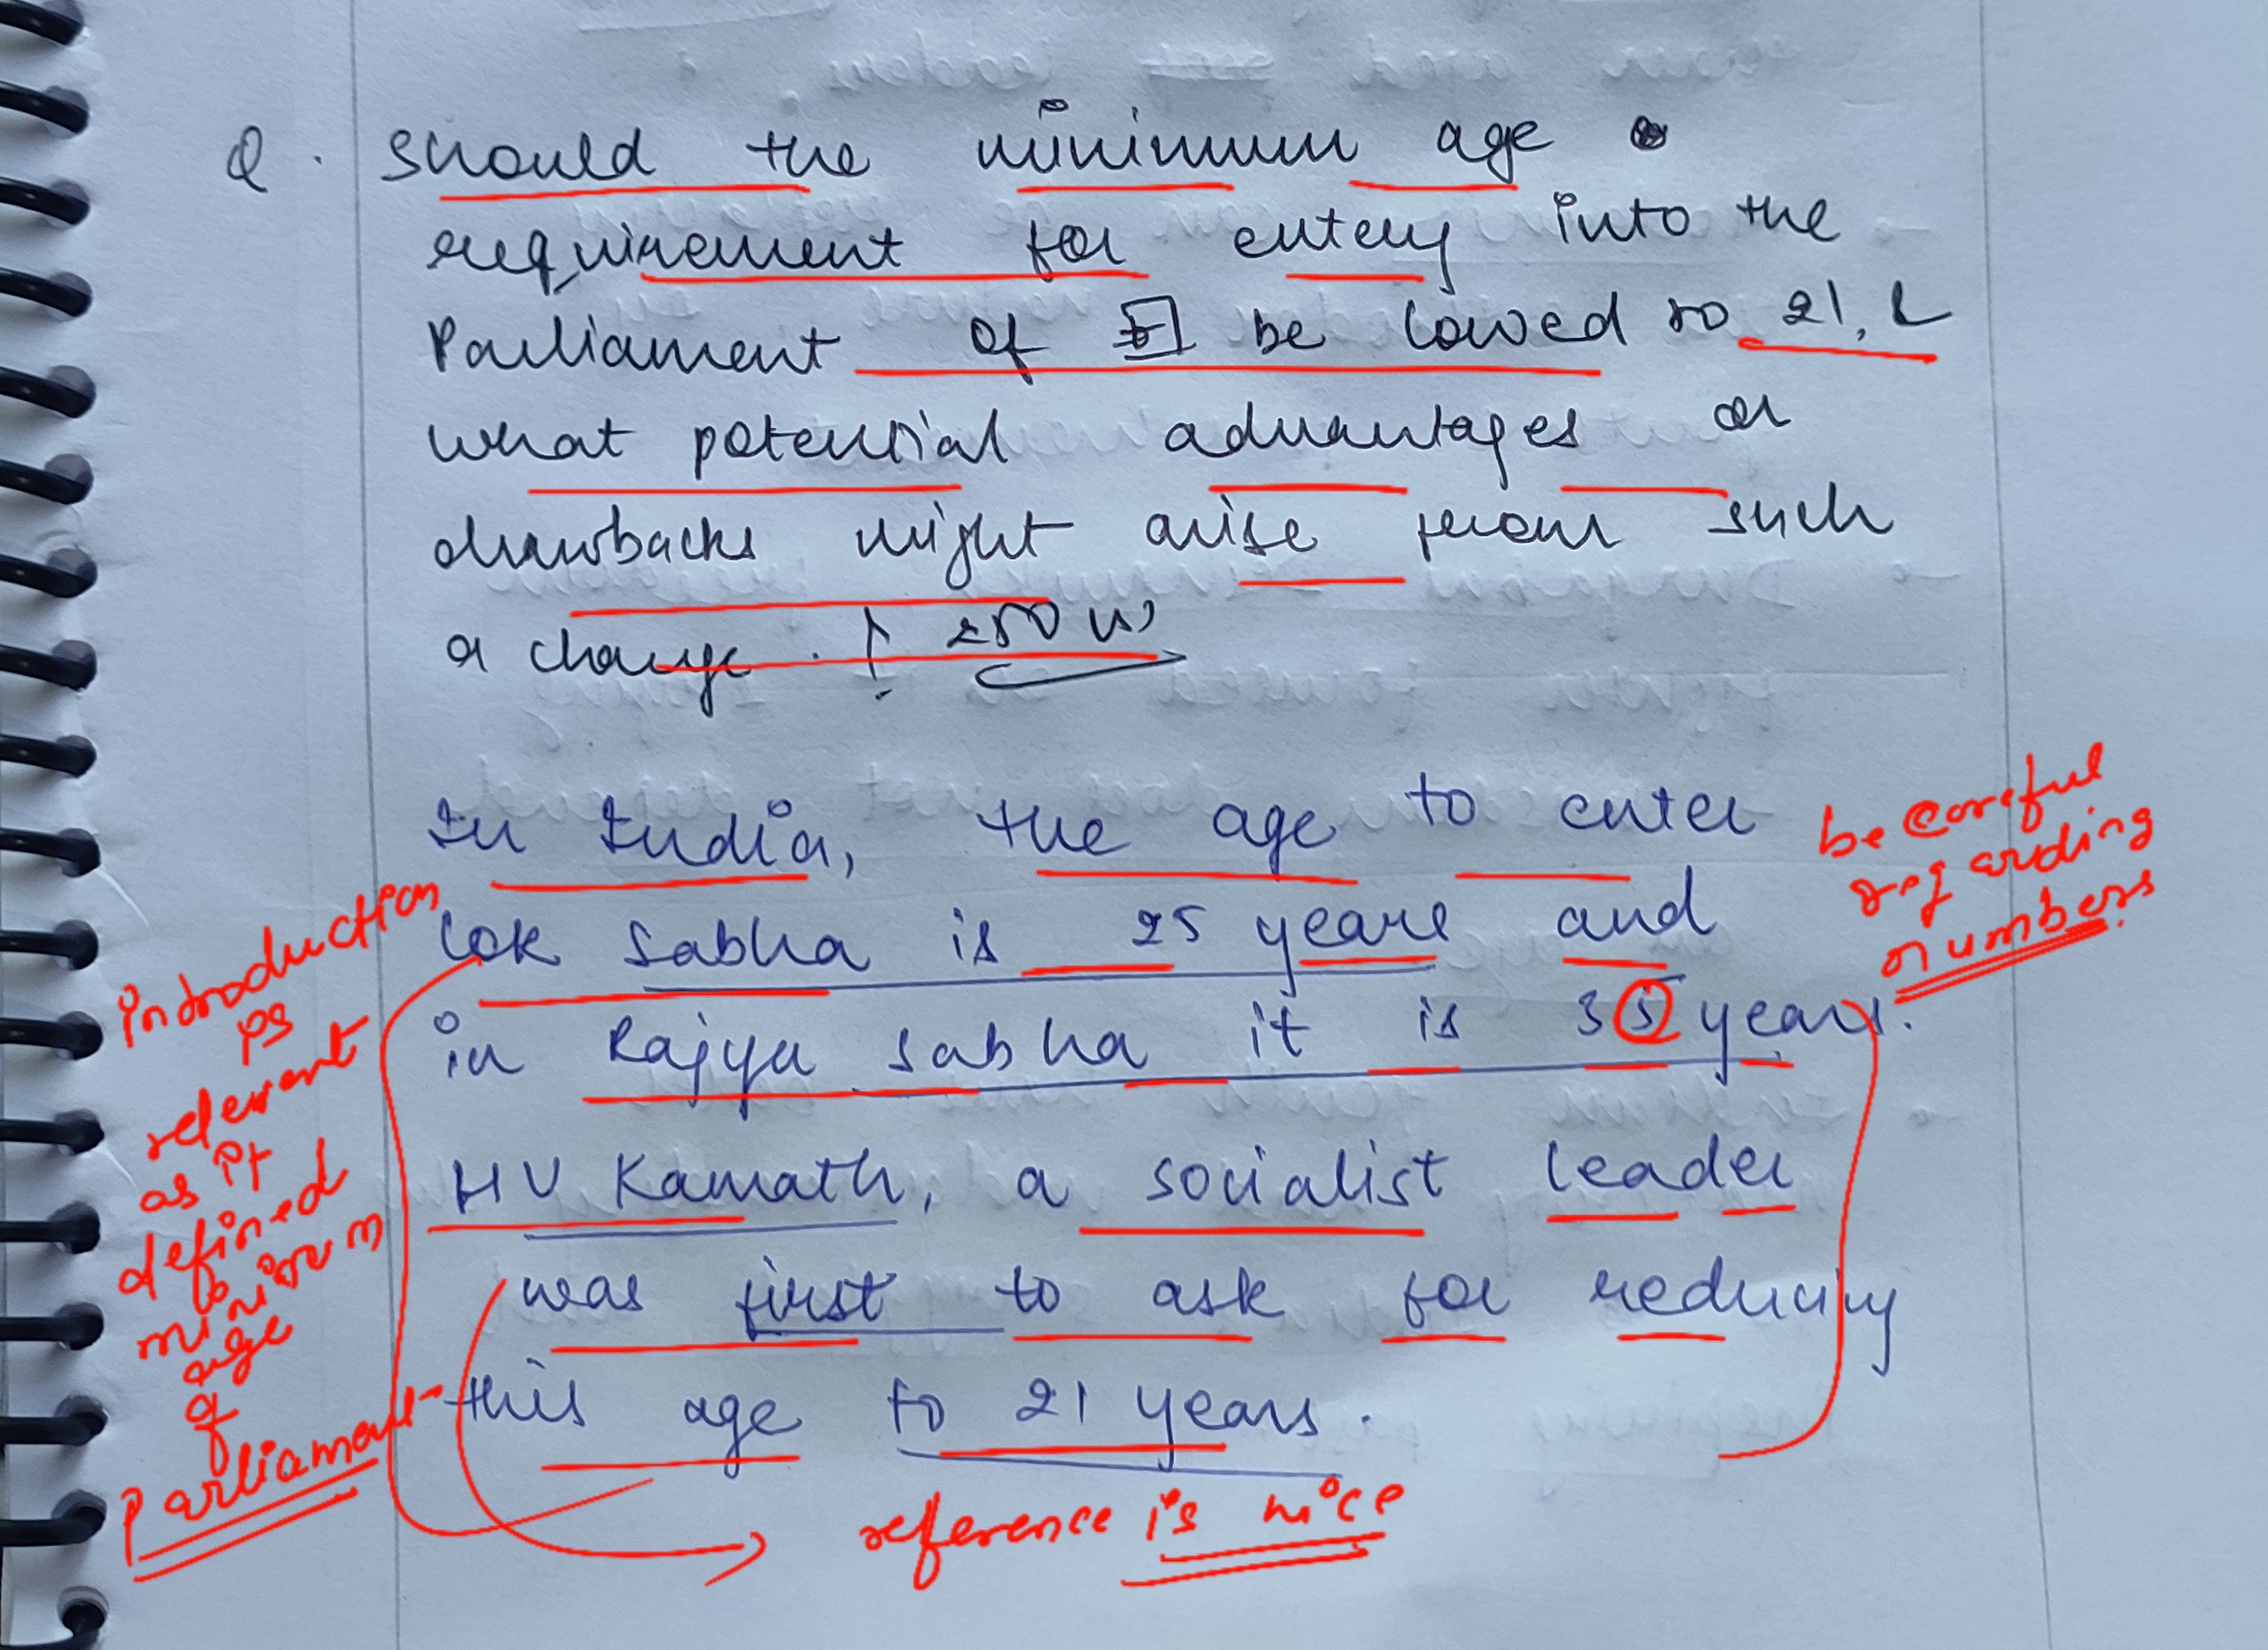 Q. Should the minimum age
requirement for entery into the
Parliament of be lowed to 21. &
what potential advantages or
drawbacks might arise from such
a change. ? 250 w
In India, the age to enter
be careful
regarding
numbers
Lok Sabha is 25 years and
in Rajya Sabha it is 35 years.
introduction
is
relevent
as it
defined
minimum
age
of
Parliament
HV Kamath, a socialist leader
was first to ask for reducing
this age to 21 years.
reference is nice